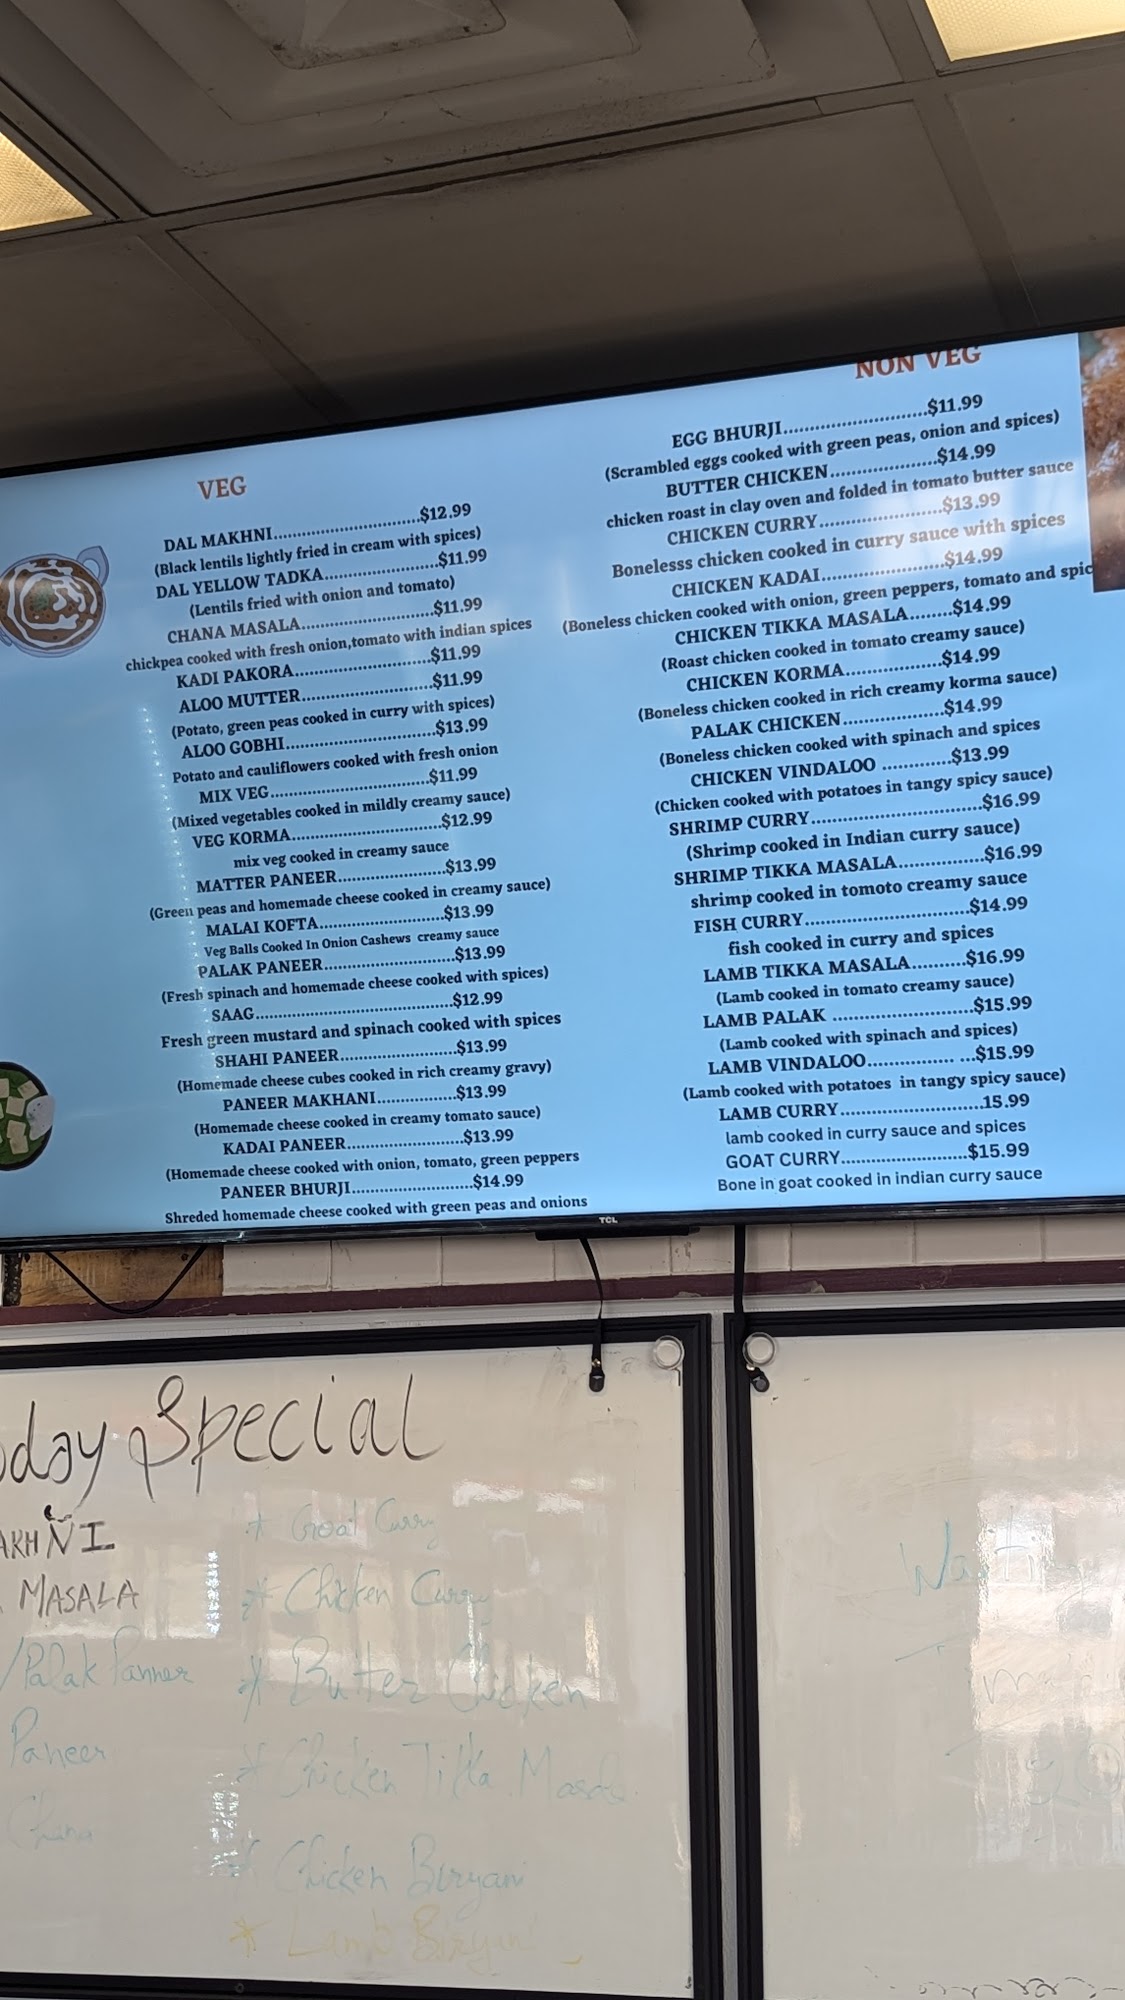 VEG
DAL MAKHNI.................................$12.99
(Black lentils lightly fried in cream with spices)
DAL YELLOW TADKA.........................$11.99
(Lentils fried with onion and tomato)
CHANA MASALA.............................$11.99
chickpea cooked with fresh onion,tomato with indian spices
KADI PAKORA..............................$11.99
ALOO MUTTER.............................$11.99
(Potato, green peas cooked in curry with spices)
ALOO GOBHI.................................$13.99
Potato and cauliflowers cooked with fresh onion
MIX VEG...................................$11.99
(Mixed vegetables cooked in mildly creamy sauce)
VEG KORMA.................................$12.99
mix veg cooked in creamy sauce
MATTER PANEER........................$13.99
(Green peas and homemade cheese cooked in creamy sauce)
MALAI KOFTA...........................$13.99
Veg Balls Cooked In Onion Cashews creamy sauce
PALAK PANEER............................$13.99
(Fresh spinach and homemade cheese cooked with spices)
SAAG..........................................$12.99
Fresh green mustard and spinach cooked with spices
SHAHI PANEER.........................$13.99
(Homemade cheese cubes cooked in rich creamy gravy)
PANEER MAKHANI.................$13.99
(Homemade cheese cooked in creamy tomato sauce)
KADAI PANEER.........................$13.99
(Homemade cheese cooked with onion, tomato, green peppers
PANEER BHURJI..........................$14.99
Shreded homemade cheese cooked with green peas and onions
NON VEG
EGG BHURJI...............................$11.99
(Scrambled eggs cooked with green peas, onion and spices)
BUTTER CHICKEN.......................$14.99
chicken roast in clay oven and folded in tomato butter sauce
CHICKEN CURRY..........................$13.99
Bonelesss chicken cooked in curry sauce with spices
CHICKEN KADAI..........................$14.99
(Boneless chicken cooked with onion, green peppers, tomato and spic
CHICKEN TIKKA MASALA........$14.99
(Roast chicken cooked in tomato creamy sauce)
CHICKEN KORMA....................$14.99
(Boneless chicken cooked in rich creamy korma sauce)
PALAK CHICKEN.....................$14.99
(Boneless chicken cooked with spinach and spices
CHICKEN VINDALOO ..............$13.99
(Chicken cooked with potatoes in tangy spicy sauce)
SHRIMP CURRY....................................$16.99
(Shrimp cooked in Indian curry sauce)
SHRIMP TIKKA MASALA..................$16.99
shrimp cooked in tomoto creamy sauce
FISH CURRY...................................$14.99
fish cooked in curry and spices
LAMB TIKKA MASALA..........$16.99
(Lamb cooked in tomato creamy sauce)
LAMB PALAK .............................$15.99
(Lamb cooked with spinach and spices)
LAMB VINDALOO.................. ...$15.99
(Lamb cooked with potatoes in tangy spicy sauce)
LAMB CURRY.............................15.99
lamb cooked in curry sauce and spices
GOAT CURRY..........................$15.99
Bone in goat cooked in indian curry sauce
TCL
oday Special
AKHNI
MASALA
/Palak Panner
Paneer
Chana
* Goat Curry
* Chicken Curry
* Butter Chicken
* Chicken Tikka Masala
* Chicken Biryani
* Lamb Biryani
Waiting